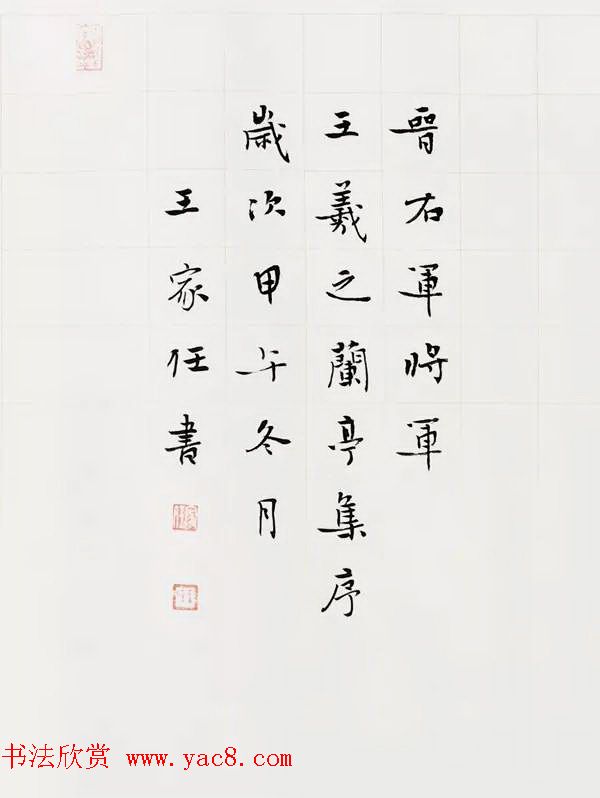 晉右軍將軍
王羲之蘭亭集序
歲次甲午冬月
王家任書
书法欣赏 www.yac8.com